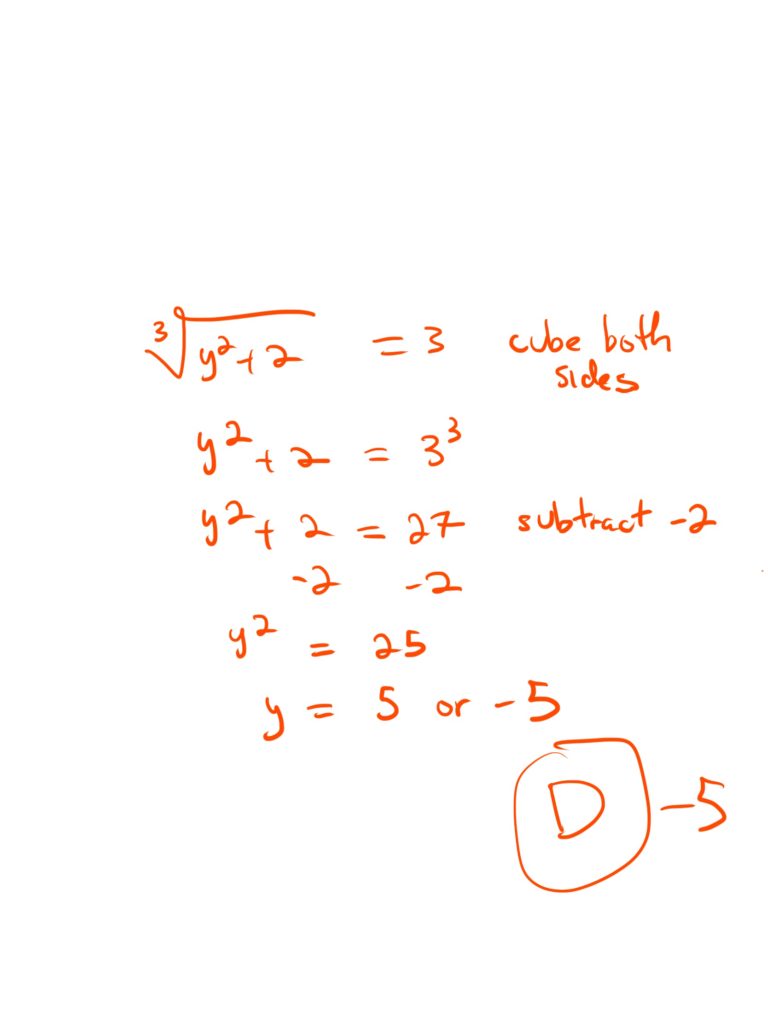 ∛(y²+2) = 3 cube both sides
y² + 2 = 3³
y² + 2 = 27 subtract -2
-2 -2
y² = 25
y = 5 or -5
D -5